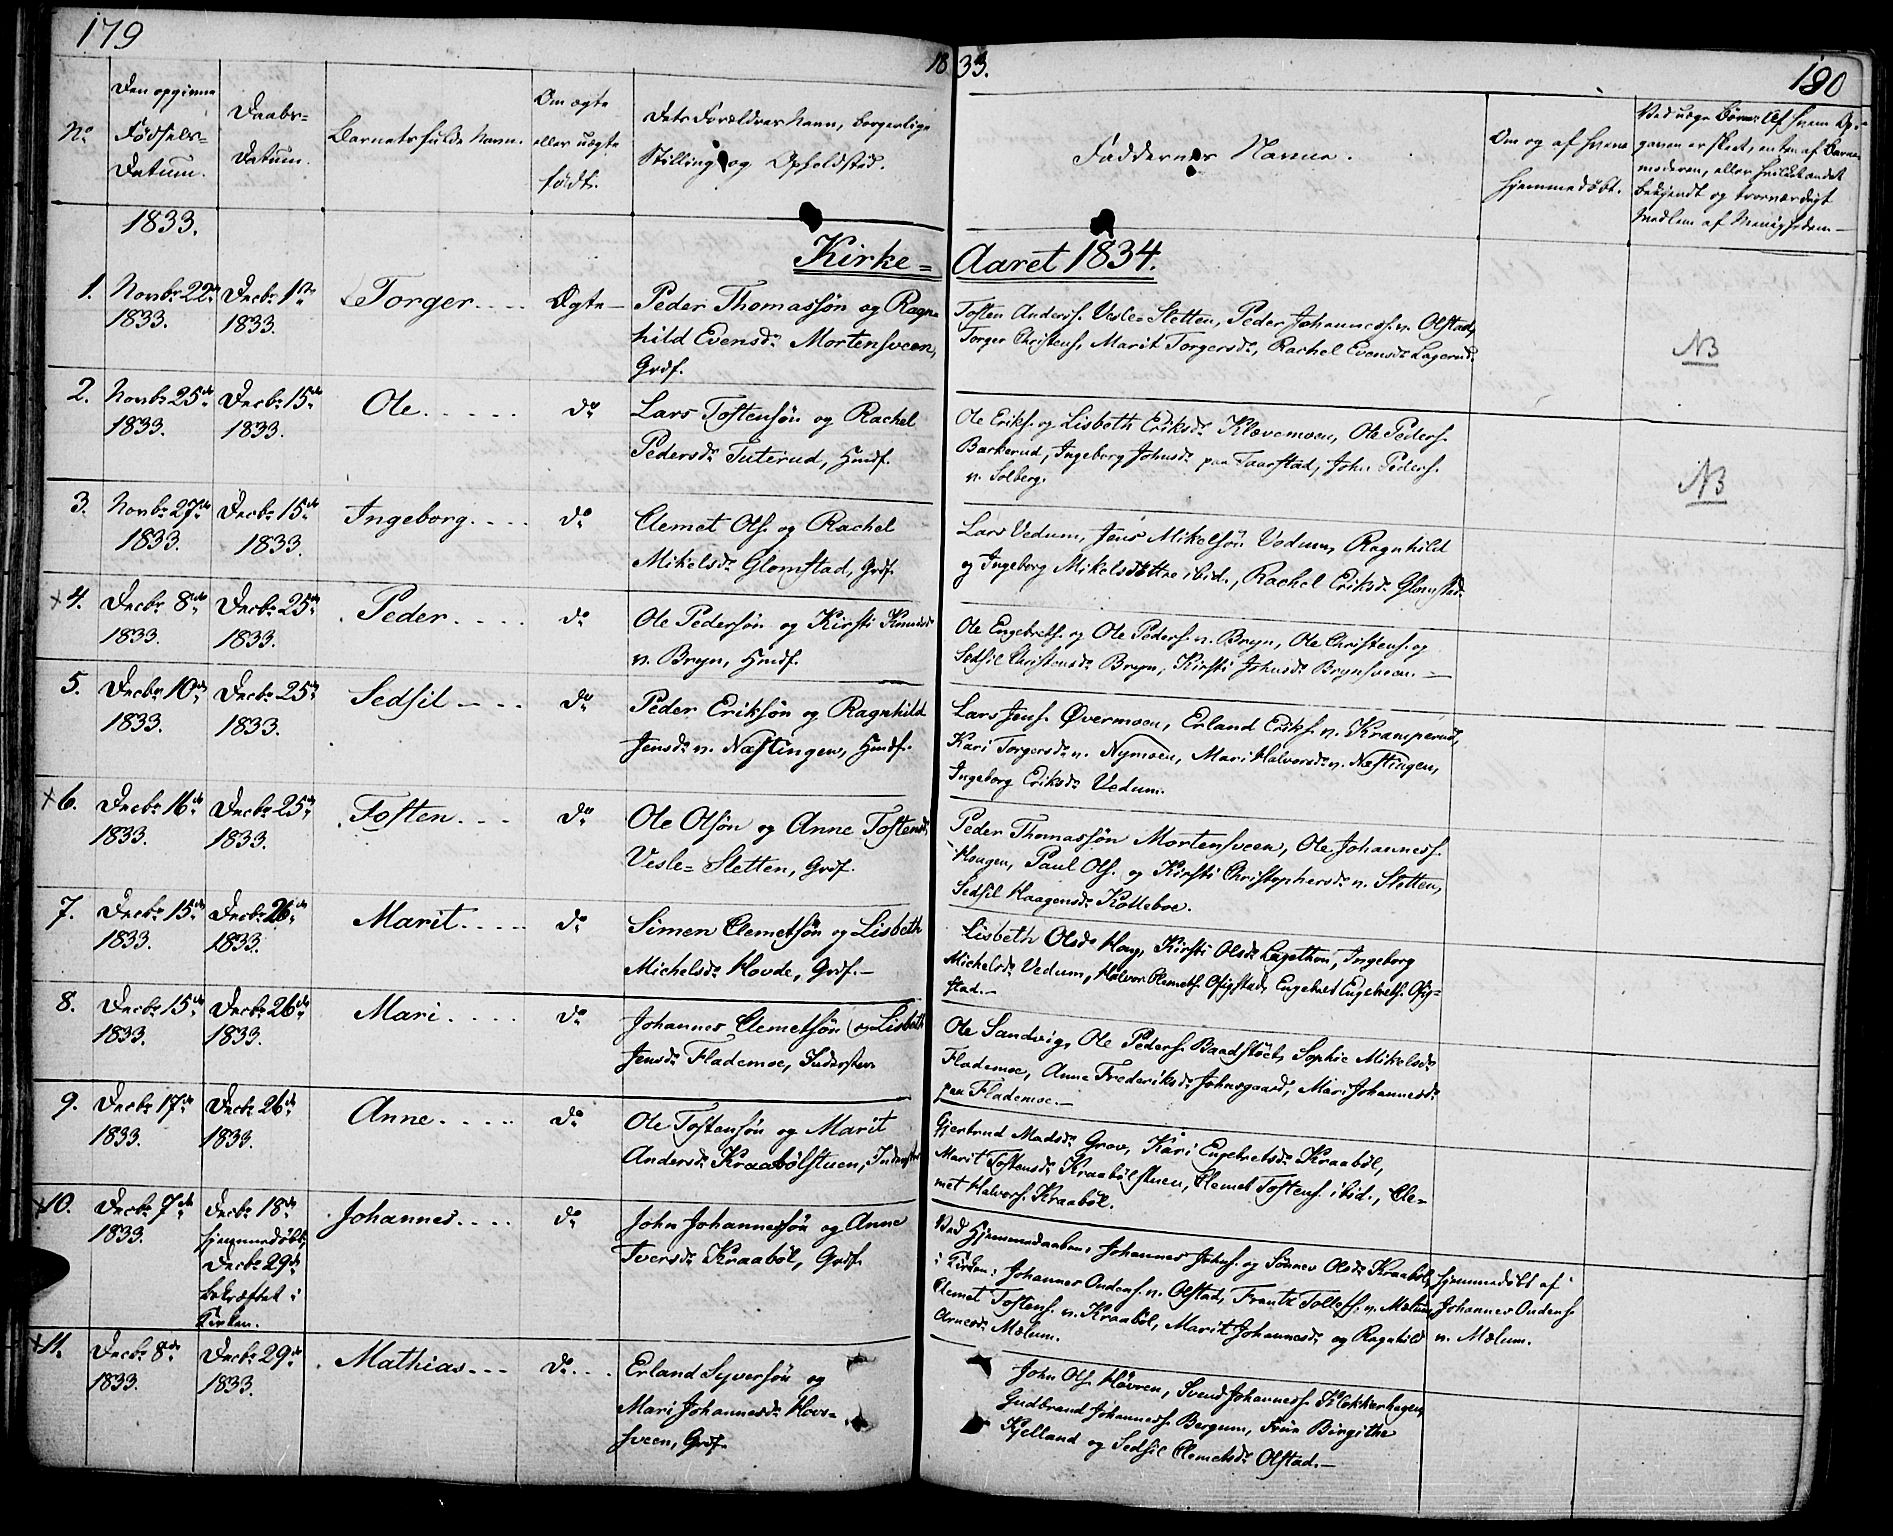 179
18 33.
180
No
Den opgivne Fødsels-Datum.
Daabs-Datum.
Barnets fulde Navn.
Om ægte eller uægte født.
Dets Forældres Navn, borgerlige
Stilling og Opholdsted.
Faddernes Navne.
Om og af hvem
hjemmedøbt.
Ved uægte Børn: Af hvem Op-
gaven er skeet, enten af Barne-
moderen, eller hvilket andet
bekjendt og troværdigt
Medlem af Menigheden—
1833.
Kirke=Aaret 1834.
1. Novbr 22de Decbr 1ste Torger.... Ægte—
1833. 1833.
Peder Thomassøn og Ragn-
hild Evensdr Mortensveen,
Grdf.
Tosten Anders. Vesle-Sletten, Peder Johanness. n. Olstad,
Torger Christens, Marit Torgersdr, Rachel Evensdr Lagerud.
NB
2. Novbr 25de Decbr 15de Ole..... do
1833. 1833.
Lars Tostensøn og Rachel
Pedersdr Tuterud, Hmdf.
Ole Eriks. og Lisbeth Eriksdr Klævemoen, Ole Peders.
Bakkerud, Ingeborg Johnsdr paa Taarstad, John Peders.
n. Solberg.
NB
3. Novbr 27de Decbr 15de Ingeborg.... do
1833. 1833.
Clemet Ols. og Rachel
Mikelsdr Glomstad, Grdf.
Lars Vedum, Jens Mikelsøn Vedum, Ragnhild
og Ingeborg Mikelsdøttre ibid., Rachel Eriksdr Glomstad.
+4. Decbr 8de Decbr 25de Peder.... do
1833. 1833.
Ole Pedersøn og Kirsti Knudsdr
n. Bryn, Hmdf.
Ole Engebrets. og Ole Peders. n. Bryn, Ole Christens. og
Sedsil Christensdr Bryn, Kirsti Johnsdr Brynsveen.—
5. Decbr 10de Decbr 25de Sedsil—.. do
1833. 1833.
Peder Eriksøn og Ragnhild
Jensdr n. Næstingen, Hmdf.
Lars Jens. Øvermoen, Erland Eriks. n. Kramperud,
Kari Torgersdr n. Nymoen, Mari Halvorsdr n. Næstingen,
Ingeborg Eriksdr Vedum.
+6. Decbr 16de Decbr 25de Tosten... do
1833. 1833.
Ole Olsøn og Anne Tostensdr
Vesle-Sletten, Grdf.
Peder Thomassøn Mortensveen, Ole Johanness.
Haugen, Paul Ols. og Kirsti Christophersdr n. Sletten,
Sedsil Haagensdr Kolleboe.
7. Decbr 15de Decbr 26de Marit.... do
1833. 1833.
Simen Clemetsøn og Lisbeth
Michelsdr Hovde, Grdf.—
Lisbeth Olsdr Houg, Kirsti Olsdr Lagethon, Ingeborg
Michelsdr Vedum, Halvor Clemets. Ofigstad, Engebret Engebrets. Ofig-
stad.—
8. Decbr 15de Decbr 26de Mari.... do
1833. 1833.
Johannes Clemetsøn og Lisbeth
Jensdr Flademoe, Inderster
Ole Sandvig, Ole Peders. Baadstøet, Sophie Mikelsdr
Flademoe, Anne Frederiksdr Johnsgaard, Mari Johannesdr
paa Flademoe.—
9. Decbr 17de Decbr 26de Anne.... do
1833. 1833.
Ole Tostensøn og Marit
Andersdr Kraabølstuen, Inderster
Gjertrud Madsdr Grov, Kari Engebretsdr Kraabøl,
Marit Tostensdr Kraabølstuen, Clemet Tostens. ibid., Cle-
met Halvors. Kraabøl.
+10. Decbr 7de Decbr 18de Johannes.... do
1833. hjemmedøbt,
Decbr 29de
bekræftet i
Kirken.
John Johannessøn og Anne
Iversdr Kraabøl, Grdf.
Ved Hjemmedaaben: Johannes Johns. og Sønnev Olsdr Kraabøl,
i Kirken: Johannes Andens. n. Olstad, Frantz Tollefs. n. Mælum,
Clemet Tostens. n. Kraabøl, Marit Johannesdr og Ragnhild
Arnesdr Mælum.
hjemmedøbt af
Johannes Andens.
n. Mælum.
+11. Decbr 8de Decbr 29de Mathias... do...
1833. 1833.
Erland Syversøn og
Mari Johannesdr Hovs-
sveen, Grdf.
John Ols. Høvren, Svend Johanness. Klokkerhagen,
Gudbrand Johanness. Bergum, Frue Birgithe
Kjelland og Sedsil Clemetsdr Olstad.—